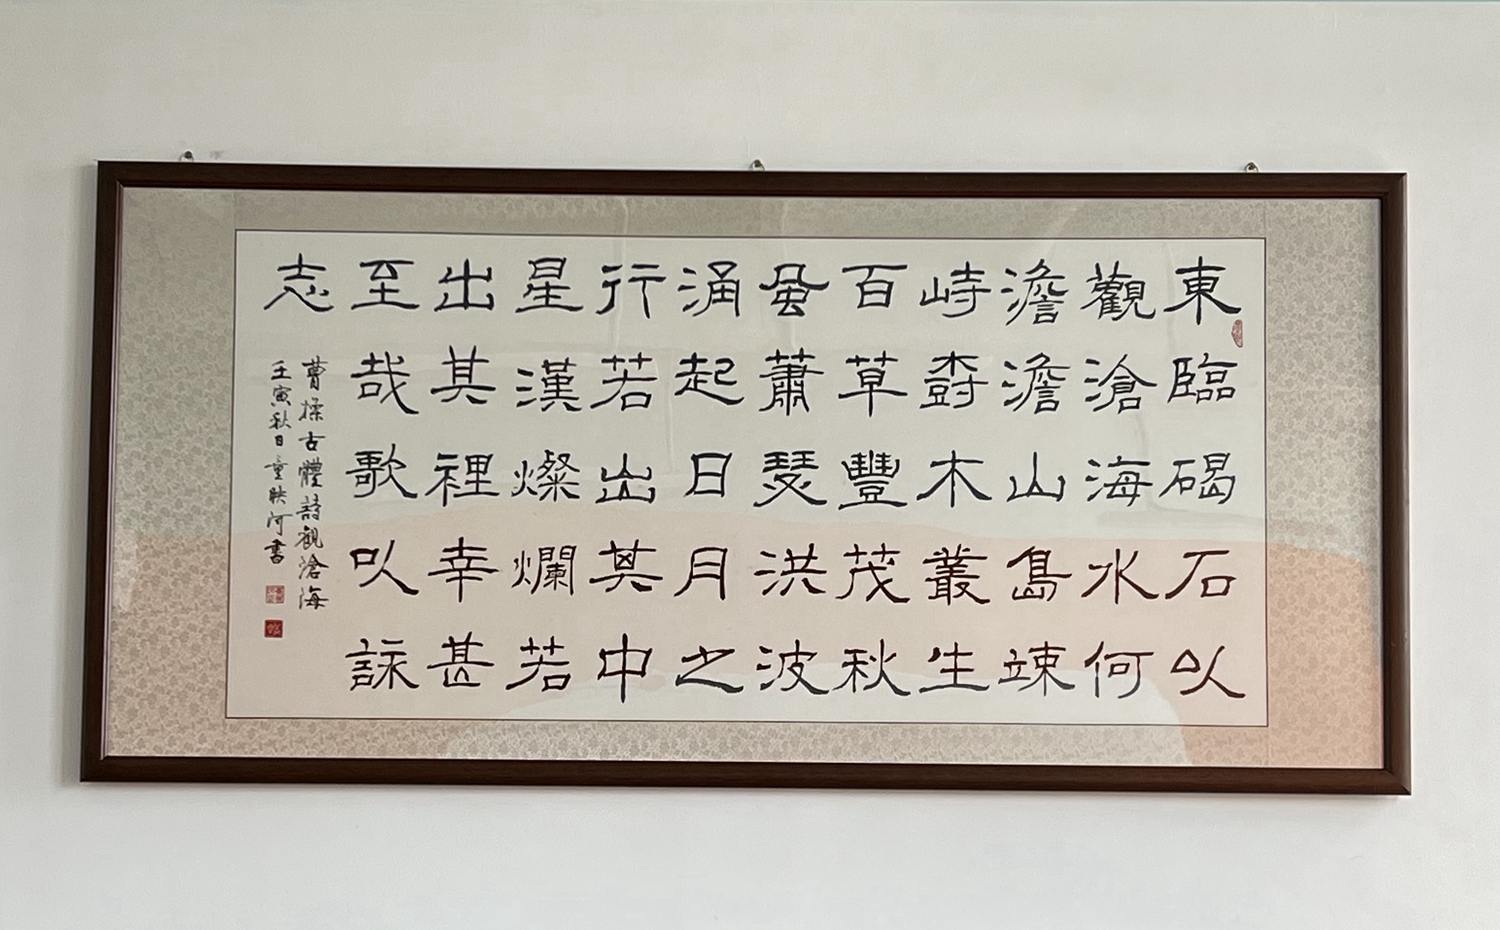 東臨碣石以
觀滄海水何
澹澹山島竦
峙樹木叢生
百草豐茂秋
風蕭瑟洪波
涌起日月之
行若出其中
星漢燦爛若
出其裡幸甚
至哉歌以詠
志
曹操古體詩觀滄海
壬寅秋日童映河書